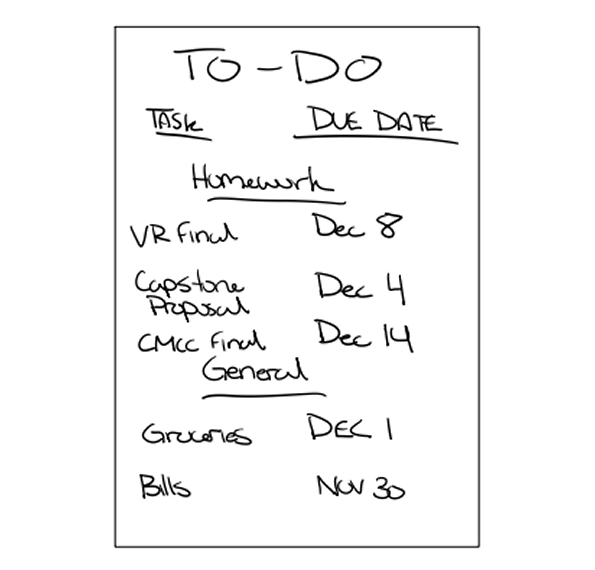 TO-DO
TASK DUE DATE
Homework
VR Final Dec 8
Capstone Dec 4
Proposal
CMCC Final Dec 14
General
Groceries DEC 1
Bills NOV 30